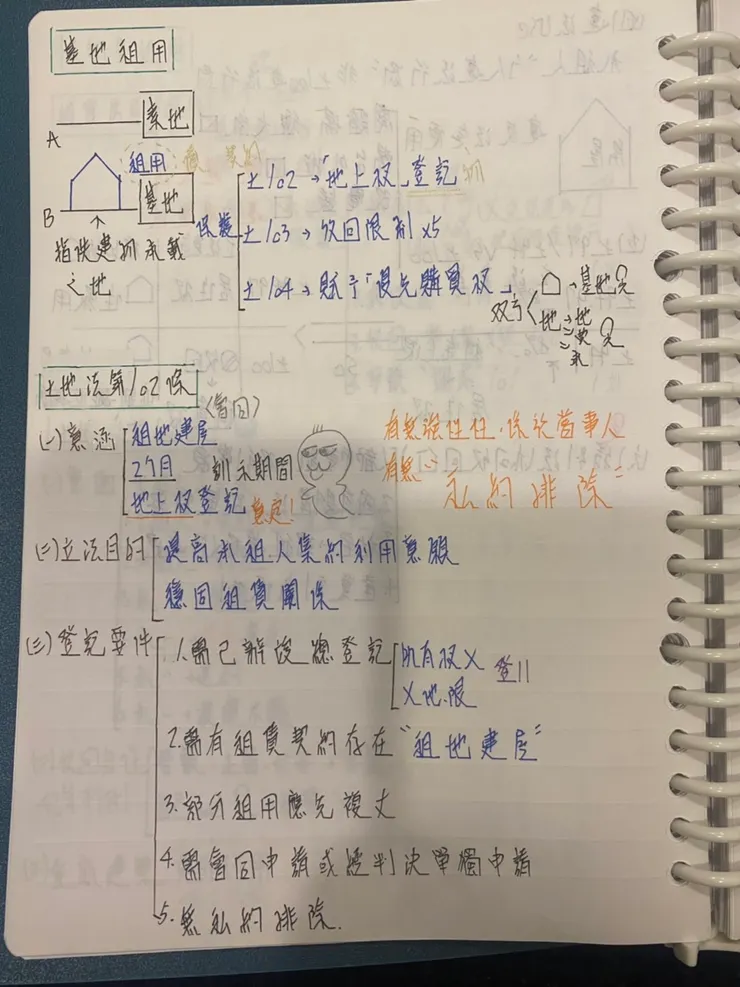 基地租用
A 素地
租用
B 基地
指供建物承載
之地
保護
土102→「地上权」登記
土103→收回限制 x5
土104→賦予「優先購買权」
双方
→基地
地→地
土地法第102條
(會同)
(一)意涵
租地建屋
2个月 訓示期間
地上权登記 意定!
有無強性任,係於當事人
有無"私約排除"
(二)立法目的
提高承租人集約利用意願
穩固租賃關係
(三)登記要件
1.需已辦竣總登記
所有权人 登11
X地.限
2.需有租賃契約存在"租地建屋"
3.部分租用應先複丈
4.需會同申請或經判決單獨申請
5.無私約排除.